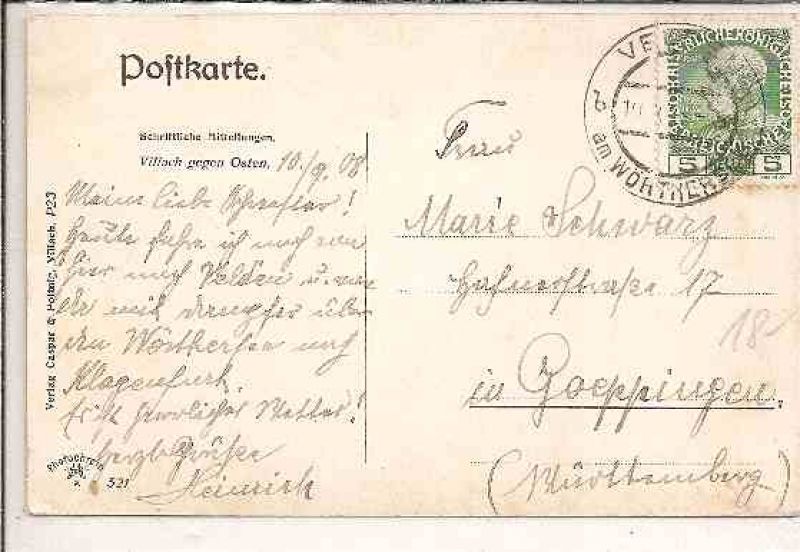 Postkarte.
Schriftliche Mitteilungen.
Villach gegen Osten. 10./9. 08
Meine liebe Schwester!
Heute fahre ich noch von
hier nach Velden u. von
da mit Dampfer über
den Wörthersee nach
Klagenfurt.
Es ist herrliches Wetter!
herzl. Grüße
Heinrich
Frau
Marie Schwarz
17
in Goeppingen.
(Württemberg)
18
VE
b
am WÖRTHERSEE
5 HELLER 5
Verlag Caspar & Pottnig, Villach. P23
Photochromie
521